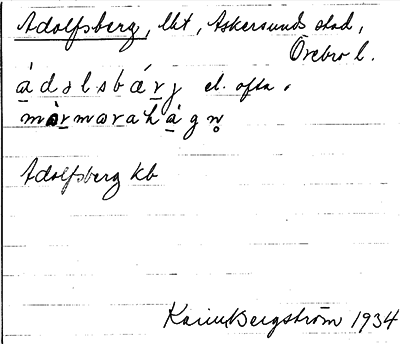 Adolfsberg, lht, Askersunds stad,
Örebro l.
ádɔlsbárj el. ofta
màrmɔrahágn̥
Adolfsberg kb
Karin Bergström 1934